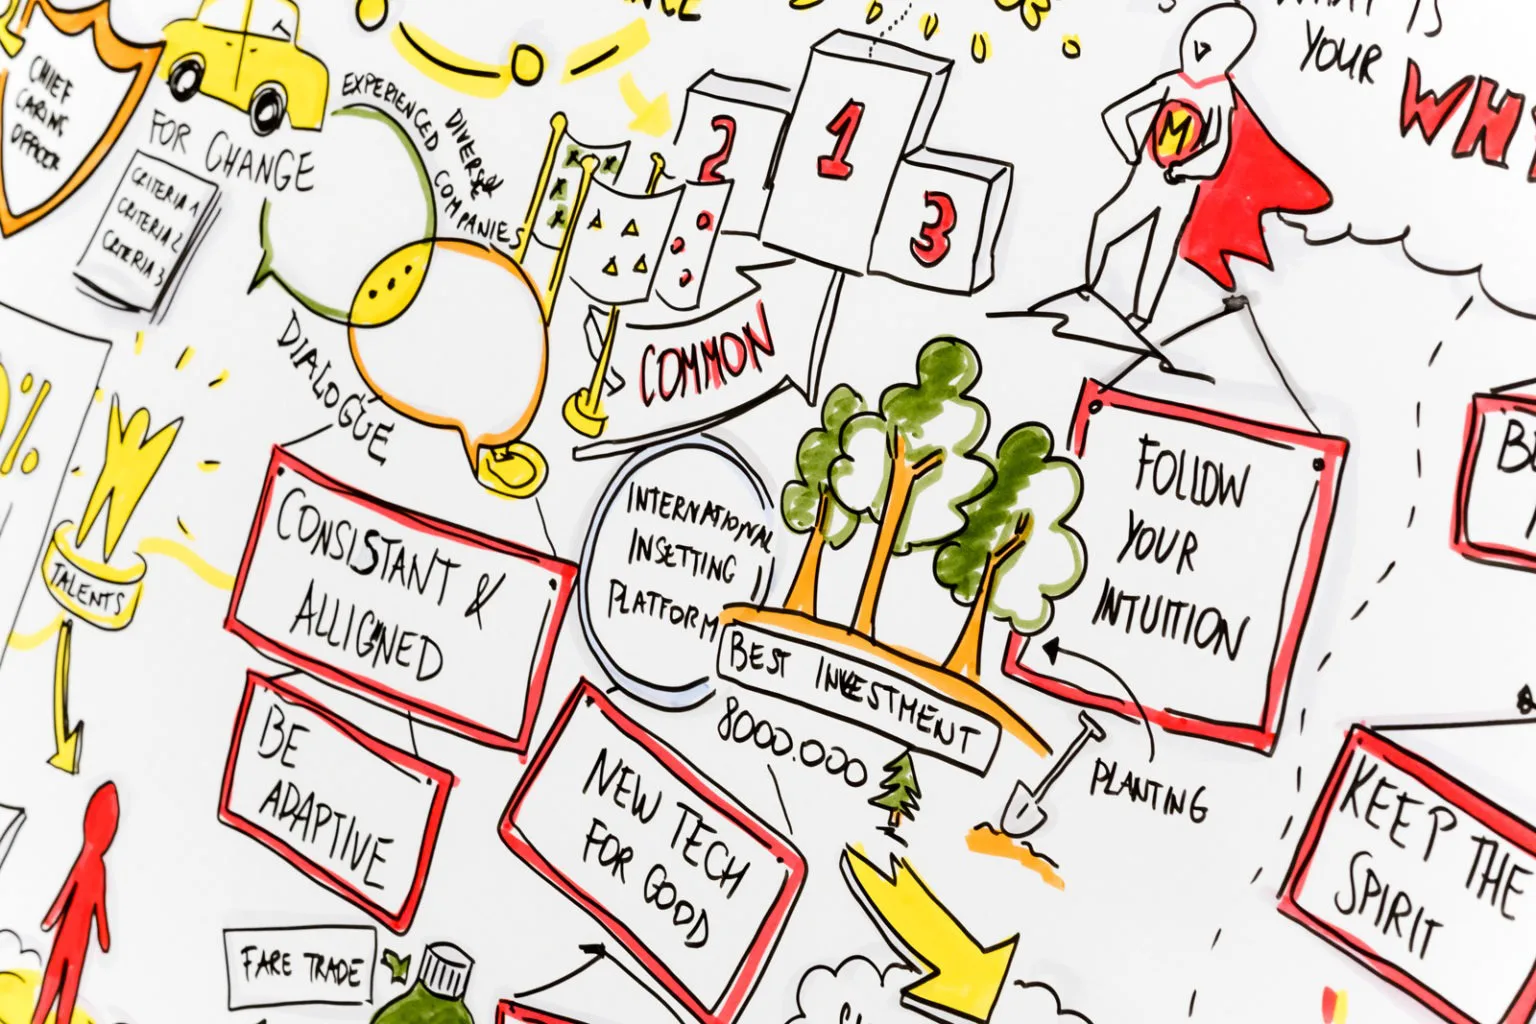 CHIEF
CARING
OFFICER
FOR CHANGE
CRITERIA 1
CRITERIA 2
CRITERIA 3
EXPERIENCED
DIVERSE
COMPANIES
DIALOGUE
2
1
3
COMMON
M
YOUR
WHY
%
TALENTS
CONSISTANT &
ALLIGNED
INTERNATIONAL
INSETTING
PLATFORM
BEST INVESTMENT
8000.000
FOLLOW
YOUR
INTUITION
PLANTING
BE
ADAPTIVE
NEW TECH
FOR GOOD
KEEP THE
SPIRIT
FARE TRADE